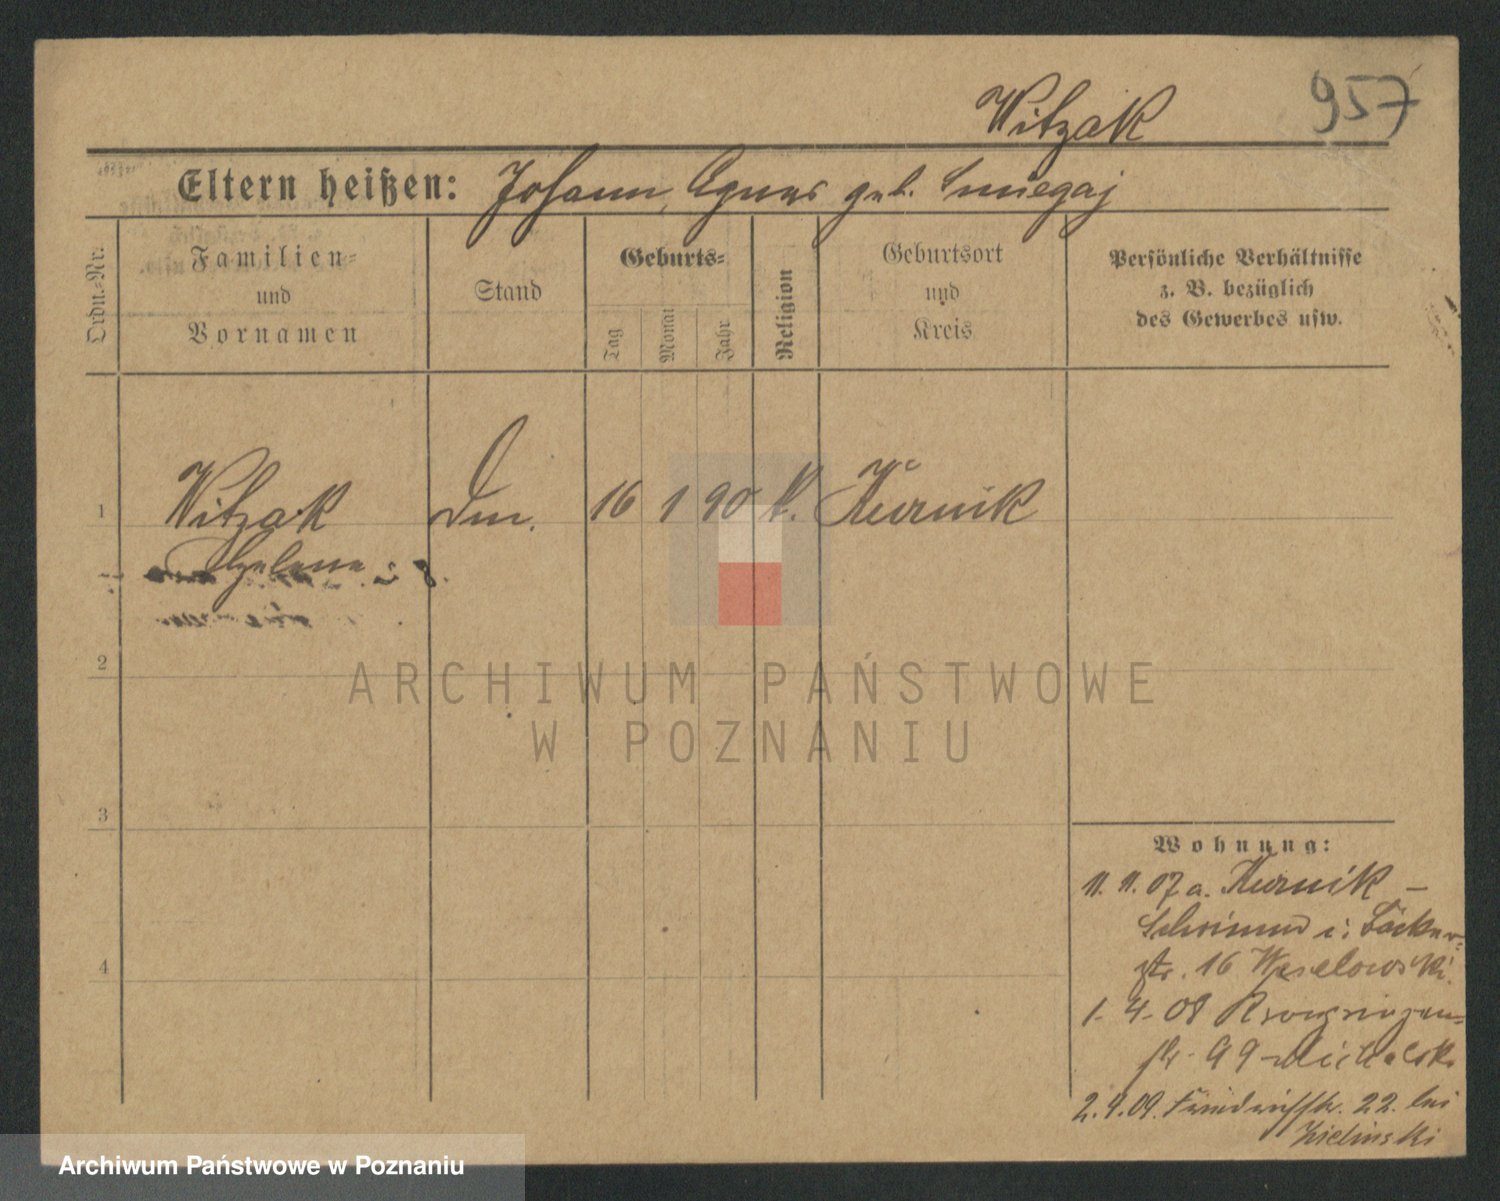 Witzak
957
Eltern heißen: Johann, Agnes geb. Smiegaj
Ordn.-Nr.
Familien-
und
Vornamen
Stand
Geburts-
Tag
Monat
Jahr
Religion
Geburtsort
und
Kreis
Persönliche Verhältnisse
z. B. bezüglich
des Gewerbes usw.
1
Witzak
Helene
16 1 90 k. Kurnik
2
ARCHIWUM PAŃSTWOWE
W POZNANIU
3
4
Wohnung:
11. 11. 07 a. Kurnik –
Schrimm
str. 16
1. 4. 08 Kronprinzen-
str. 99 Michalski
2. 4. 09. Friedrichstr. 22. bei
Zielinski
Archiwum Państwowe w Poznaniu